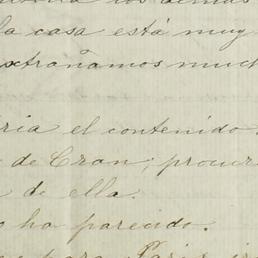 los demas
la casa está muy
extrañamos much
ria el contenido.
de Cran; procur
de ella.
ha parecido.
para Paris